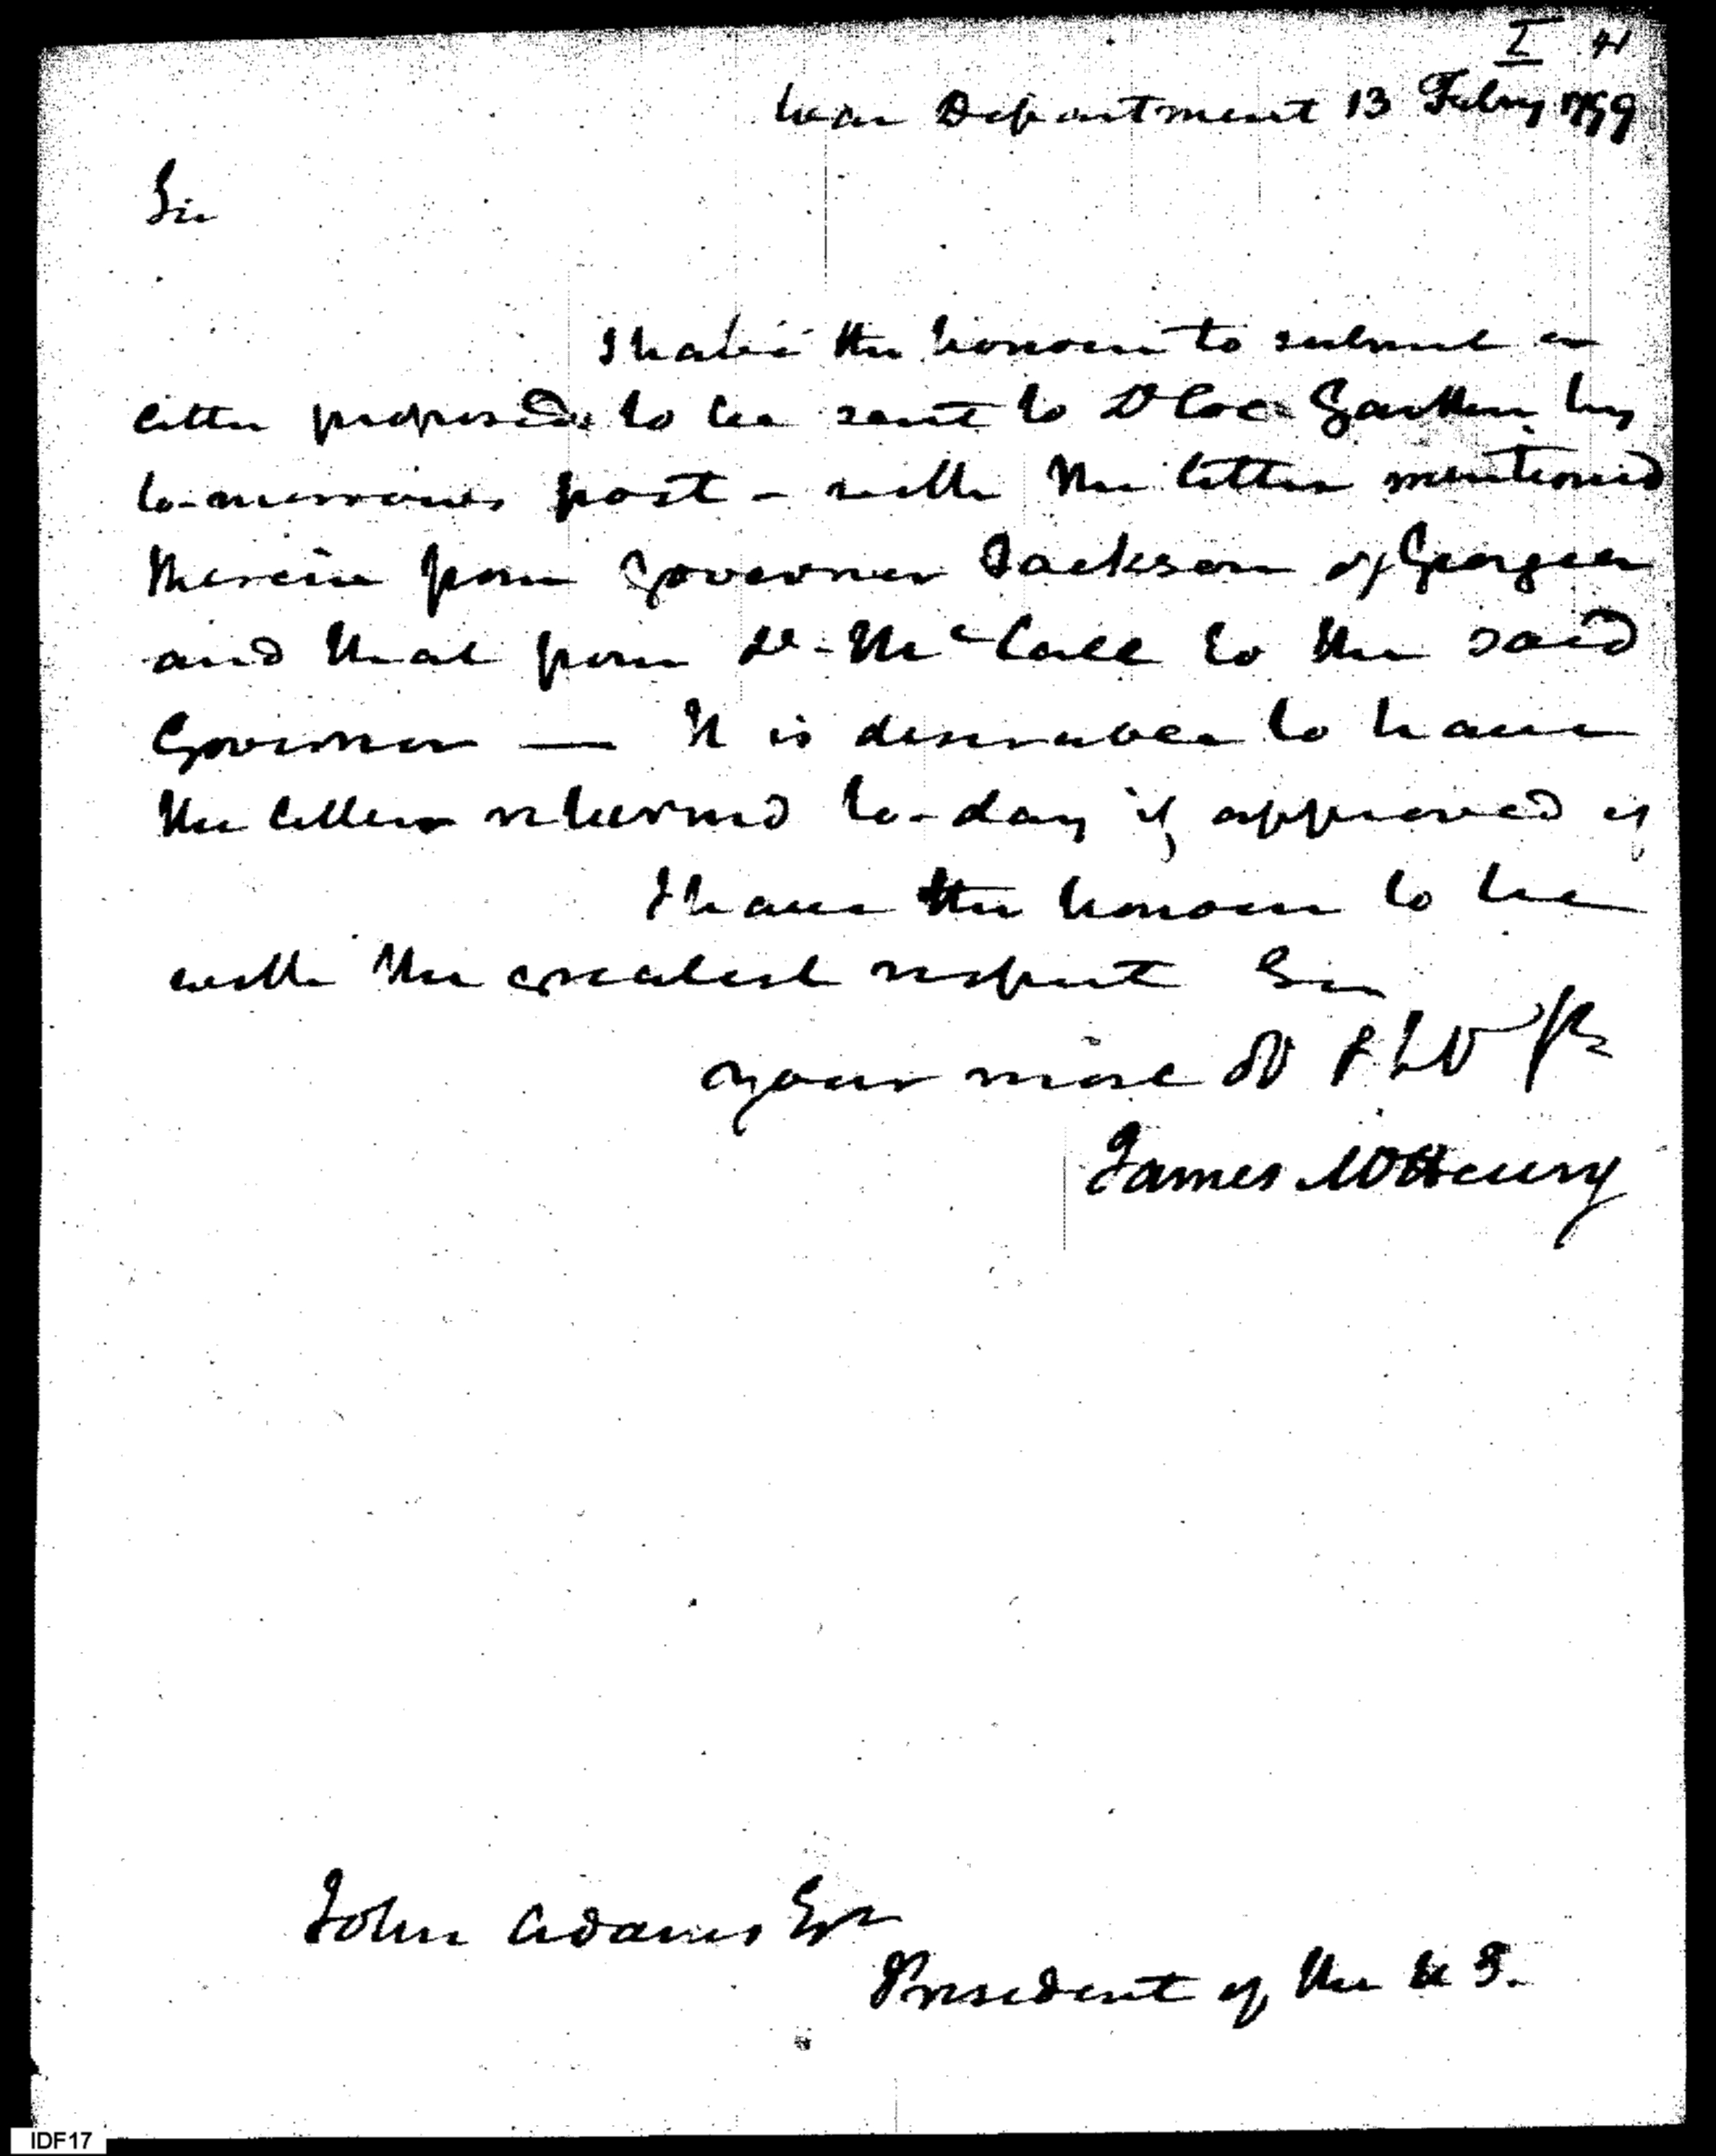 I 41
War Department 13 Feby 1799
Sir
I have the honour to submit a
letter proposed to be sent to Lt Col. Gaither by
to-morrows post - with the letter mentioned
therein from Governor Jackson of Georgia
and that from Lt. McCall to the said
Governor — It is desireable to have
the letters returned to-day if approved of
I have the honour to be
with the greatest respect Sir
your most Ob & hb
James McHenry
John Adams Esqr
President of the U S.
IDF17